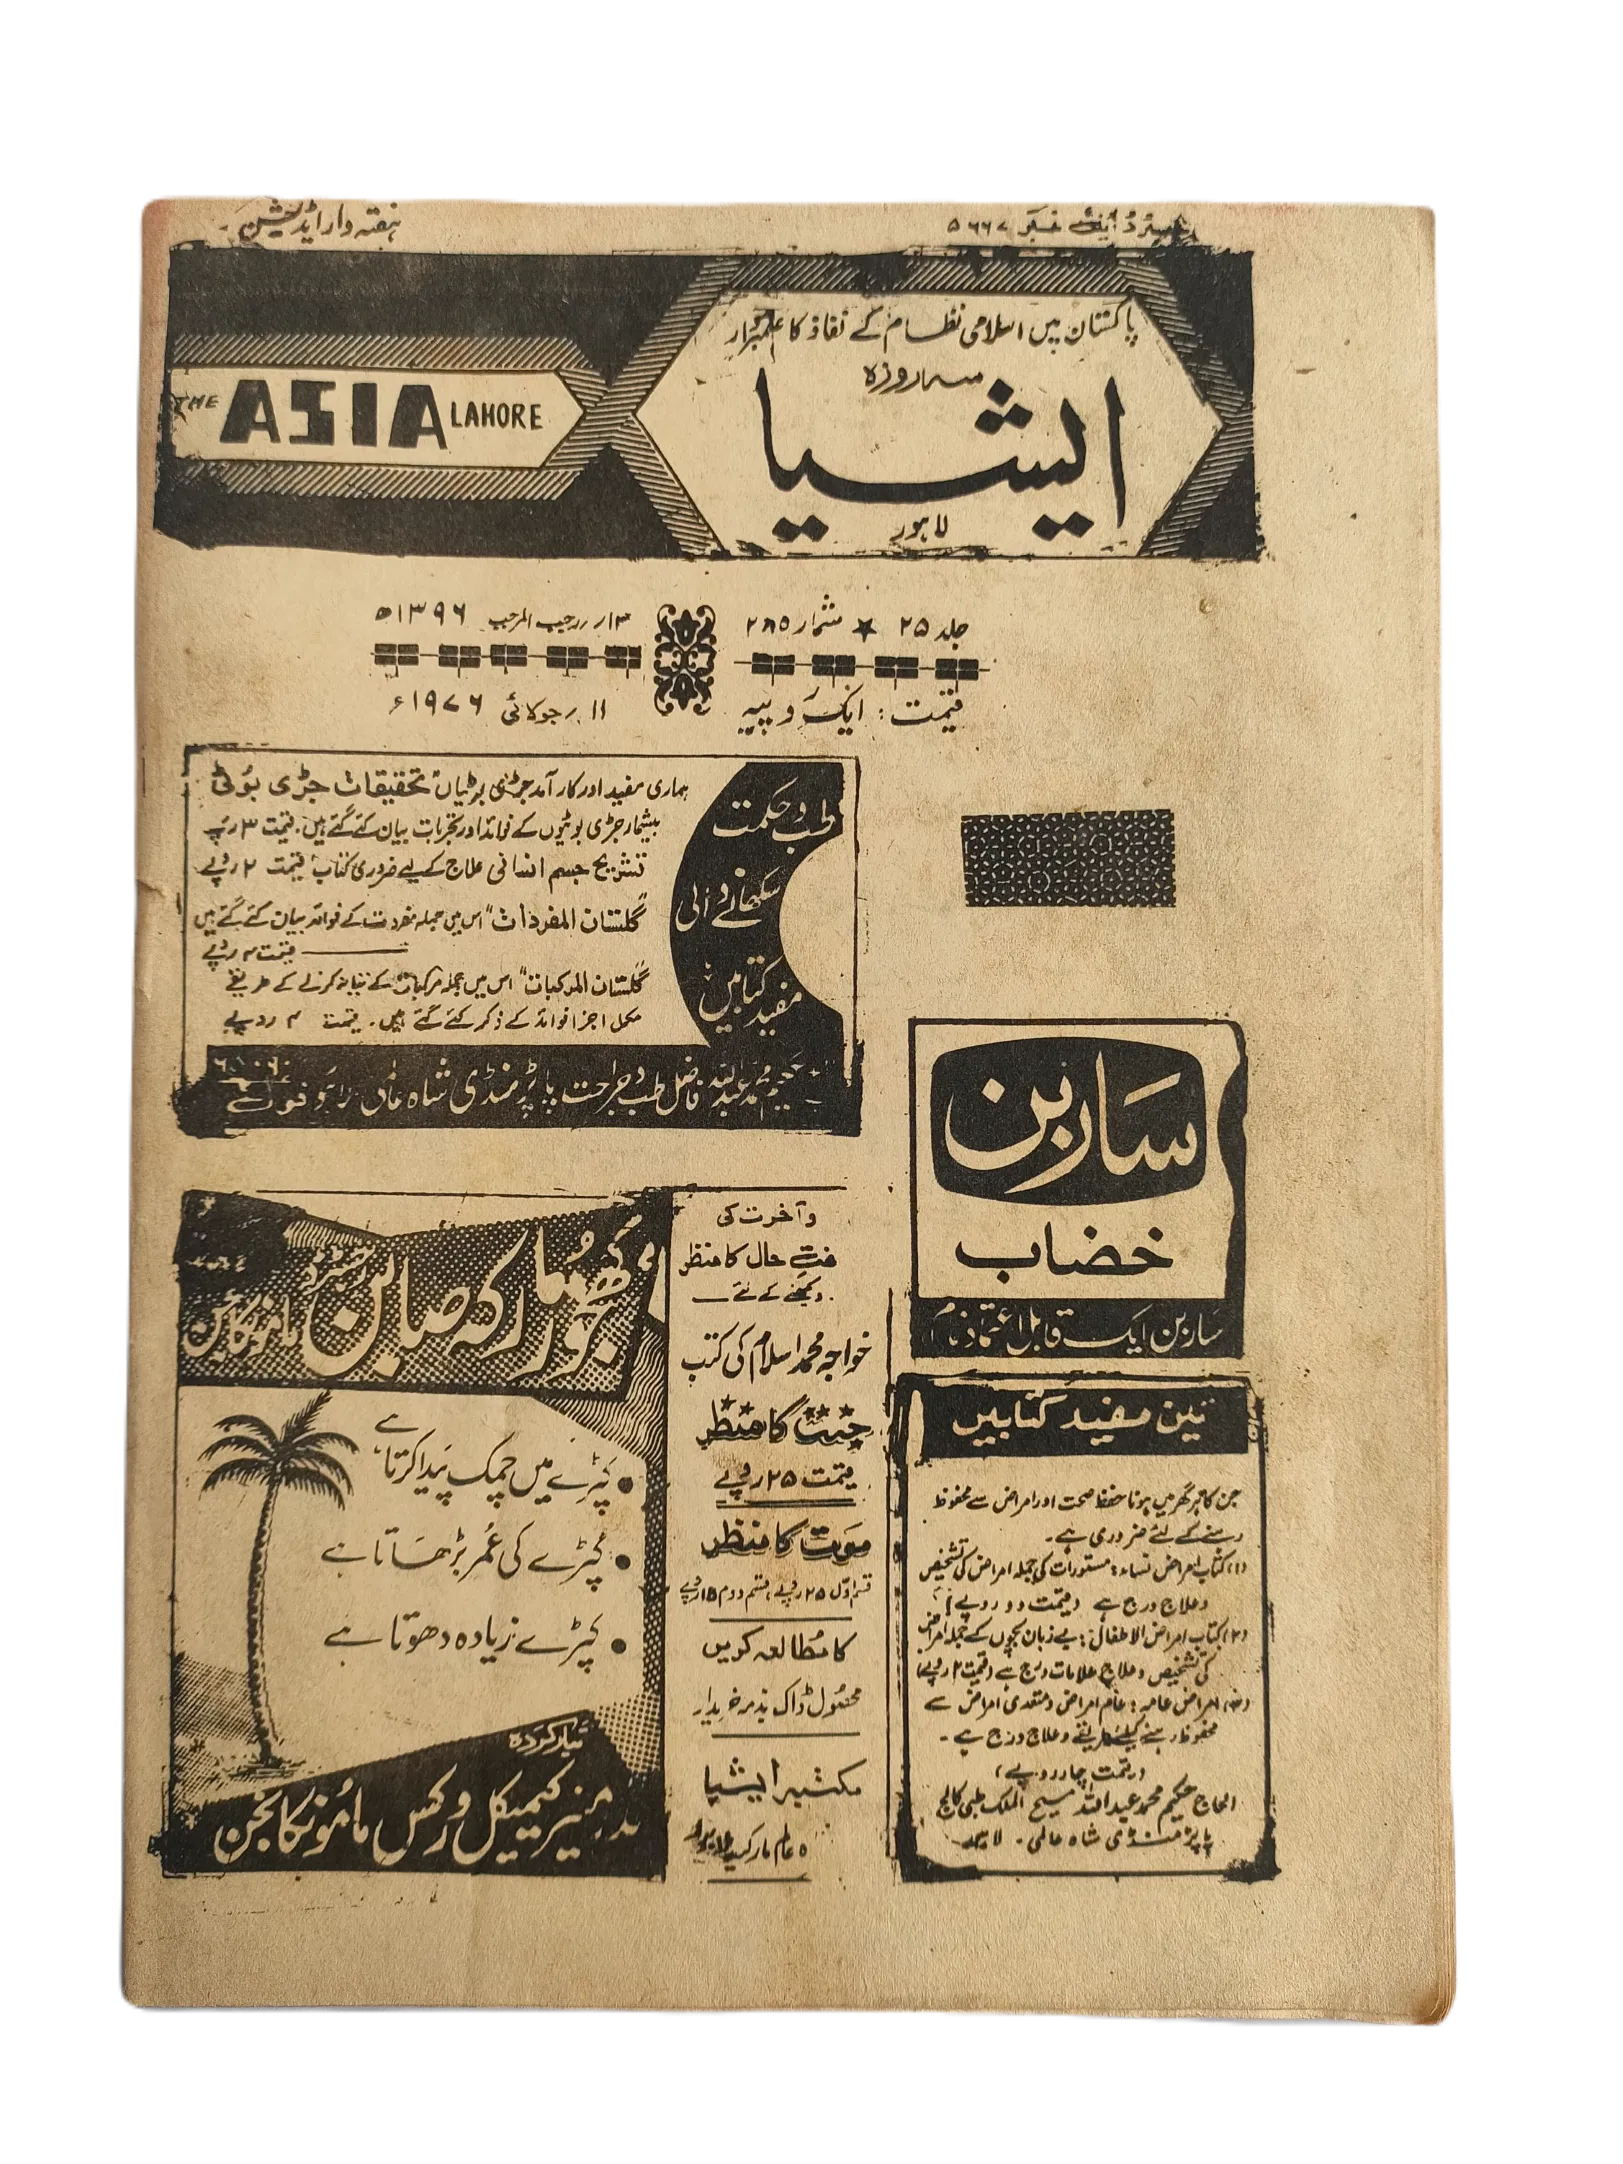 ہفتہ وار ایڈیشن
رجسٹرڈ ایل نمبر ۵۶۶۷
پاکستان میں اسلامی نظام کے نفاذ کا علمبردار
سہ روزہ
ایشیا
لاہور
THE ASIA LAHORE
جلد ۲۵ ★ شمارہ ۲۸۵
۱۳ رجب المرجب ۱۳۹۶ھ
قیمت : ایک روپیہ
۱۱ جولائی ۱۹۷۶ء
طب و حکمت
سکھانے والی
مفید کتابیں
ہماری مفید اور کار آمد جڑی بوٹیاں تحقیقات جڑی بوٹی
بیشمار جڑی بوٹیوں کے فوائد اور تجربات بیان کئے گئے ہیں۔ قیمت ۳ روپے
تشریح جسم انسانی علاج کے لیے ضروری کتاب قیمت ۲ روپے
"گلستان المفردات" اس میں جملہ مفردات کے فوائد بیان کئے گئے ہیں
قیمت ۴ روپے
"گلستان المرکبات" اس میں جملہ مرکبات کے تیار کرنے کے طریقے
مکمل اجزا فوائد کے ذکر کئے گئے ہیں۔ قیمت ۴ روپے
حکیم محمد عبداللہ فاضل طب و جراحت پاپڑ منڈی شاہ عالمی لاہور فون
ساربن
خضاب
ساربن ایک قابل اعتماد نام
کھجور مارکہ صابن
کپڑے میں چمک پیدا کرتا ہے
کپڑے کی عمر بڑھاتا ہے
کپڑے زیادہ دھوتا ہے
تیار کردہ
بدر منیر کیمیکل ورکس ماموں کانجن
و آخرت کی
حال کا منظر
دیکھنے کے لئے
خواجہ محمد اسلام کی کتب
جنت کا منظر
قیمت ۲۵ روپے
موت کا منظر
قسم اول ۲۵ روپے، قسم دوم ۱۵ روپے
کا مطالعہ کریں
محصول ڈاک بذمہ خریدار
مکتبہ ایشیا
تین مفید کتابیں
جن کا ہر گھر میں ہونا حفظ صحت اور امراض سے محفوظ
رہنے کے لئے ضروری ہے۔
(۱) کتاب امراض نساء : مستورات کی جملہ امراض کی تشخیص
و علاج درج ہے (قیمت دو روپے)
(۲) کتاب امراض الاطفال : بے زبان بچوں کے جملہ امراض
کی تشخیص و علاج علامات درج ہے (قیمت ۲ روپے)
امراض عامہ : عام امراض و متعدی امراض سے
محفوظ رہنے کیلئے طریقے و علاج درج ہے۔
(قیمت چار روپے)
الحاج حکیم محمد عبداللہ مسیح الملک طبی کالج
پاپڑ منڈی شاہ عالمی۔ لاہور